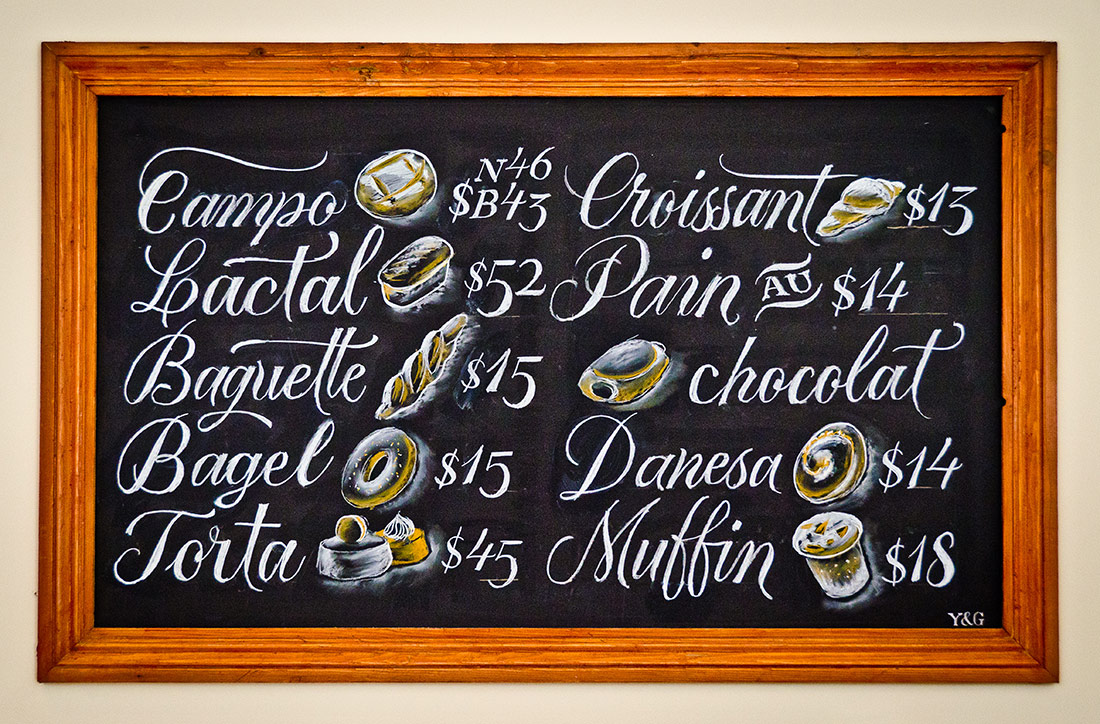 Campo N46
$B43
Lactal $52
Baguette $15
Bagel $15
Torta $45
Croissant $13
Pain AU $14
chocolat
Danesa $14
Muffin $18
Y&G